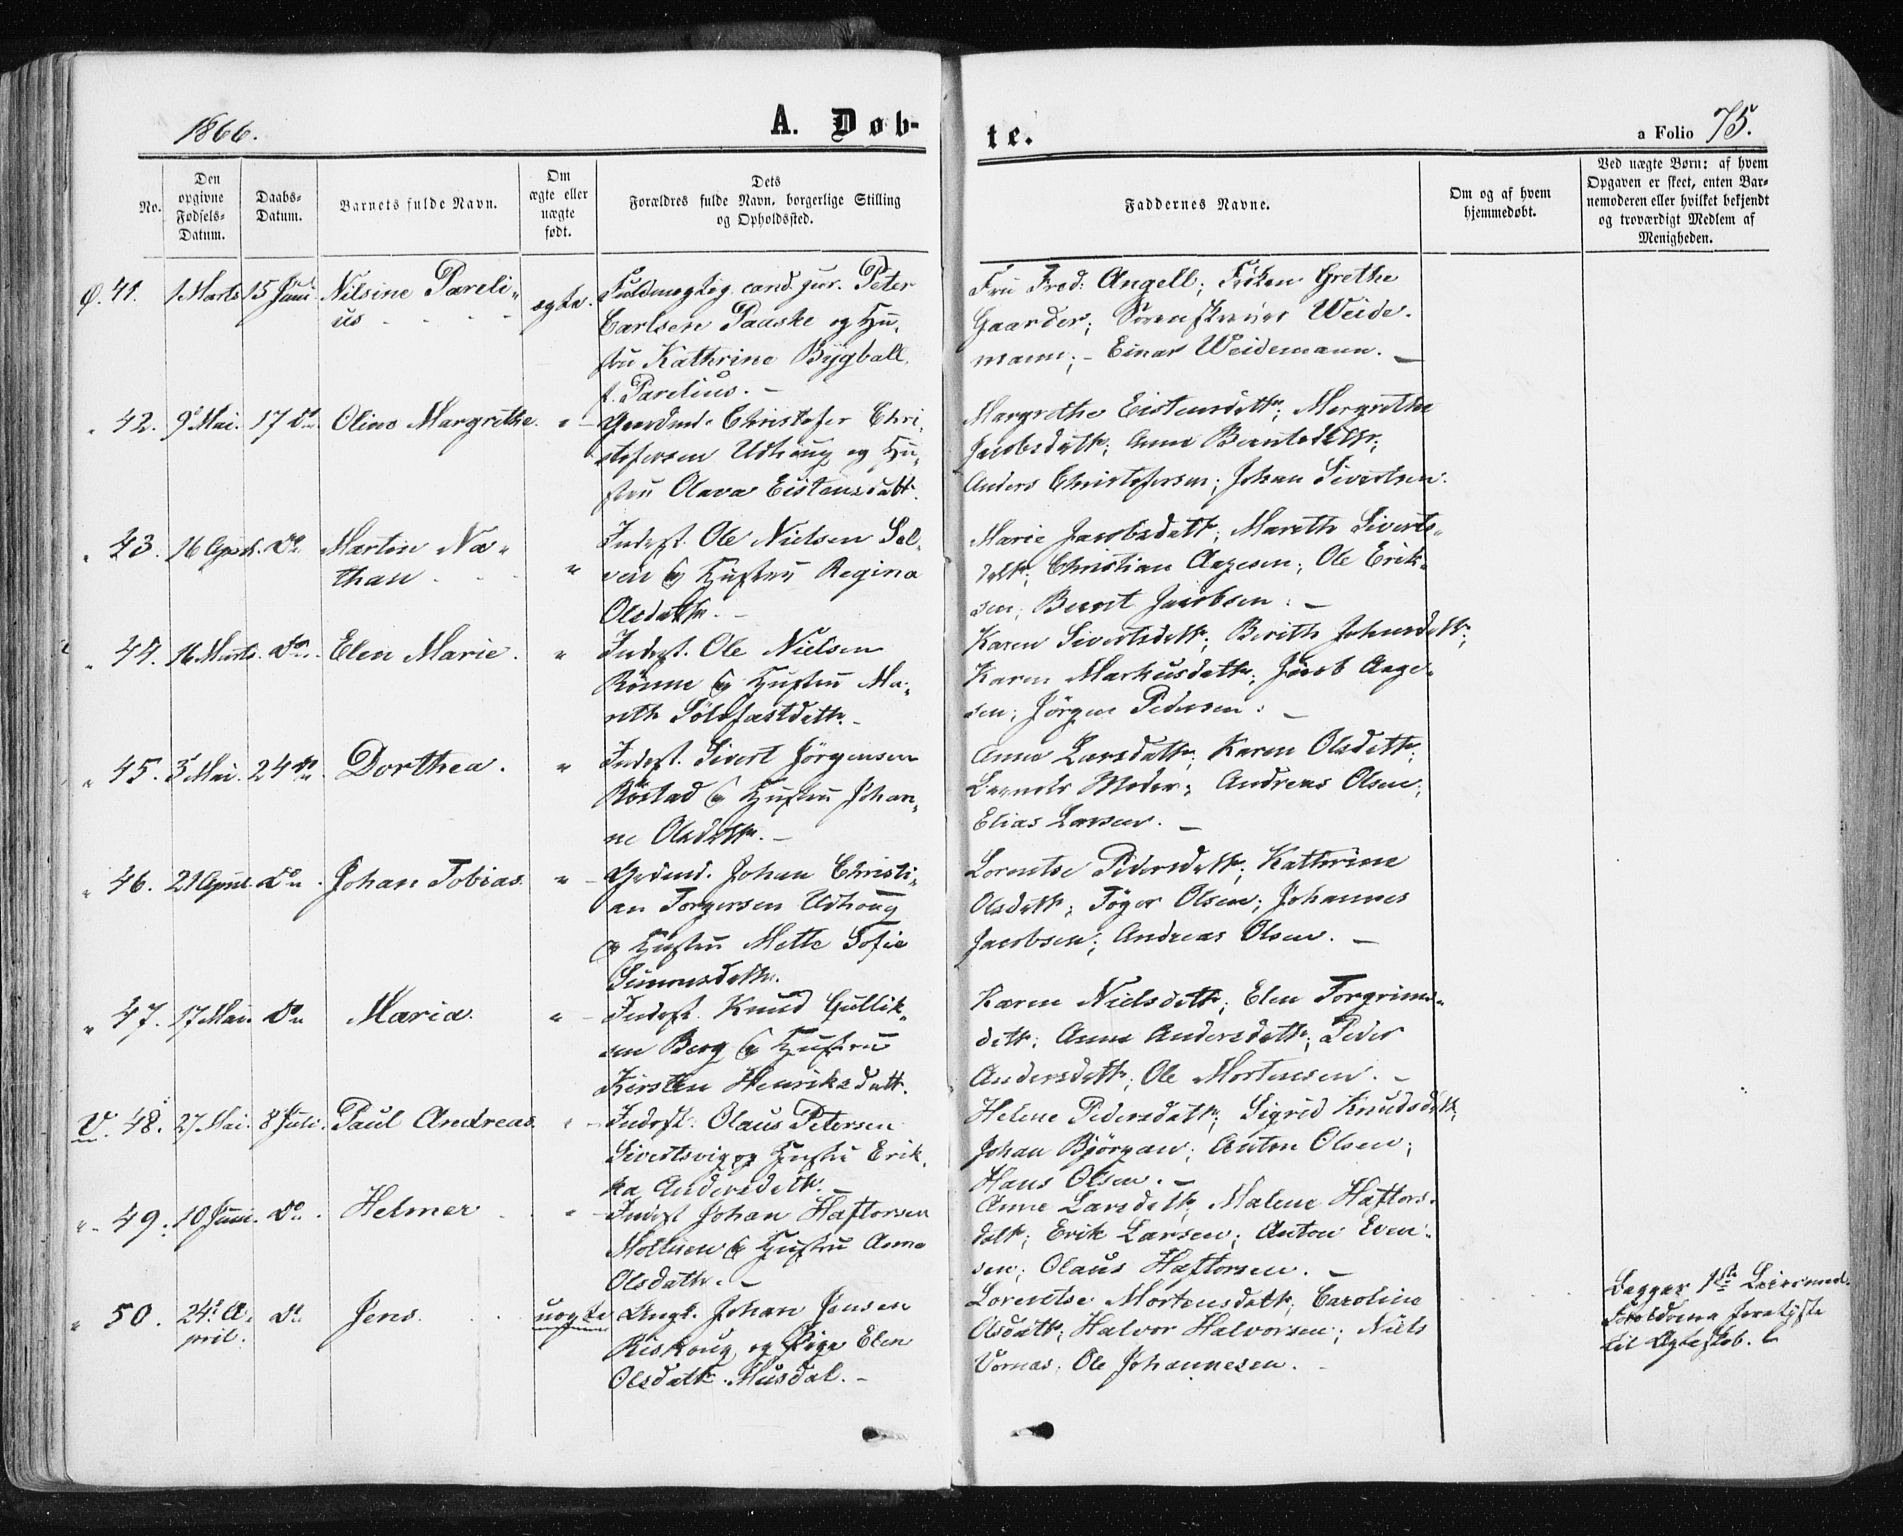 1866.
A. Døb-
te.
a Folio 75.
No.
Den
opgivne
Fødsels-
Datum.
Daabs-
Datum.
Barnets fulde Navn.
Om
ægte eller
uægte
født.
Dets
Forældres fulde Navn, borgerlige Stilling
og Opholdssted.
Faddernes Navne.
Om og af hvem
hjemmedøbt.
Ved uægte Børn: af hvem
Opgaven er skeet, enten Bar-
nemoderen eller hvilket bekjendt
og troværdigt Medlem af
Menigheden.
Ø. 41. 1 Marts 15 Juni Nilsine Pareli-
us
ægte.
Fuldmægtig cand. jur. Peter
Carlsen Paaske og Hu-
stru Kathrine Bygball
f. Parelius. -
Fru Fred: Angell; Frøken Grethe
Gaarder; Weide-
mann; - Einar Weidemann. -
" 42. 9d Mai. 17 do Oline Margrethe. "
Gaardmd. Christofer Chri-
stofersen Udhoug og Hu-
stru Olava Eistensdatt.
Margrethe Eistensdattr; Margrethe
Jacobsdattr; Anna Berntsdattr;
Anders Christofersen; Johan Sivertsen.
" 43. 16 April. do Martin Na-
than "
Inderst. Ole Nielsen Sel-
ven og Hustru Regina
Olsdattr. -
Marie Jacobsdattr; Mareth Siverts-
dattr; Christian Aagesen; Ole Erik-
sen; Bernt Jacobsen. -
" 44. 16 Marts. do Elen Marie. "
Inderst. Ole Nielsen
Rönne og Hustru Ma-
reth Solofastdattr. -
Karen Sivertsdattr; Berith Johnsdattr;
Karen Markusdattr; Jacob Aage-
sen; Jörgen Pedersen. -
" 45. 3 Mai. 24 do Dorthea. "
Inderst. Sivert Jörgensen
Röstad og Hustru Johan-
ne Olsdattr. -
Anna Larsdattr; Karen Olsdattr;
Barnets Moder; Andreas Olsen;
Elias Larsen. -
" 46. 21 April. do Johan Tobias. "
Grdmd. Johan Christi-
an Torgersen Udhoug
og Hustru Mette Sofie
Simonsdattr.
Lorentse Pedersdattr; Kathrine
Olsdattr; Töger Olsen; Johannes
Jacobsen; Andreas Olsen. -
" 47. 17 Mai. do Maria. "
Inderst. Knud Gullik-
sen Berg og Hustru
Kirsten Henriksdatt.
Karen Nielsdattr; Elen Torgrims-
dattr; Anne Andersdattr; Peder
Andersdattr; Ole Mortensen. -
V. 48. 27 Mai. 8 Juli. Paul Andreas. "
Inderst. Olaus Petersen
Sivertsvig og Hustru Erik-
ka Andersdattr. -
Helene Pedersdattr; Sigrid Knudsdattr;
Johan Björgan; Anton Olsen;
Hans Olsen. -
" 49. 10 Juni. do. Helmer "
Inderst Johan Haftorsen
og Hustru Anna
Olsdattr. -
Anne Larsdattr; Malene Haftors-
dattr; Erik Larsen; Anton Even-
sen; Olaus Haftorsen. -
" 50. 24d A-
pril. do Jens. uægte
Ungk. Johan Jensen
Riskoug og Pige Elen
Olsdattr. Musdal. -
Lorentse Mortensdattr; Caroline
Olsdattr; Halvor Halvorsen; Niels
Vornas; Ole Johannesen. -
Begges 1ste Leiermaal.
Forældrene
til Ægteskab.